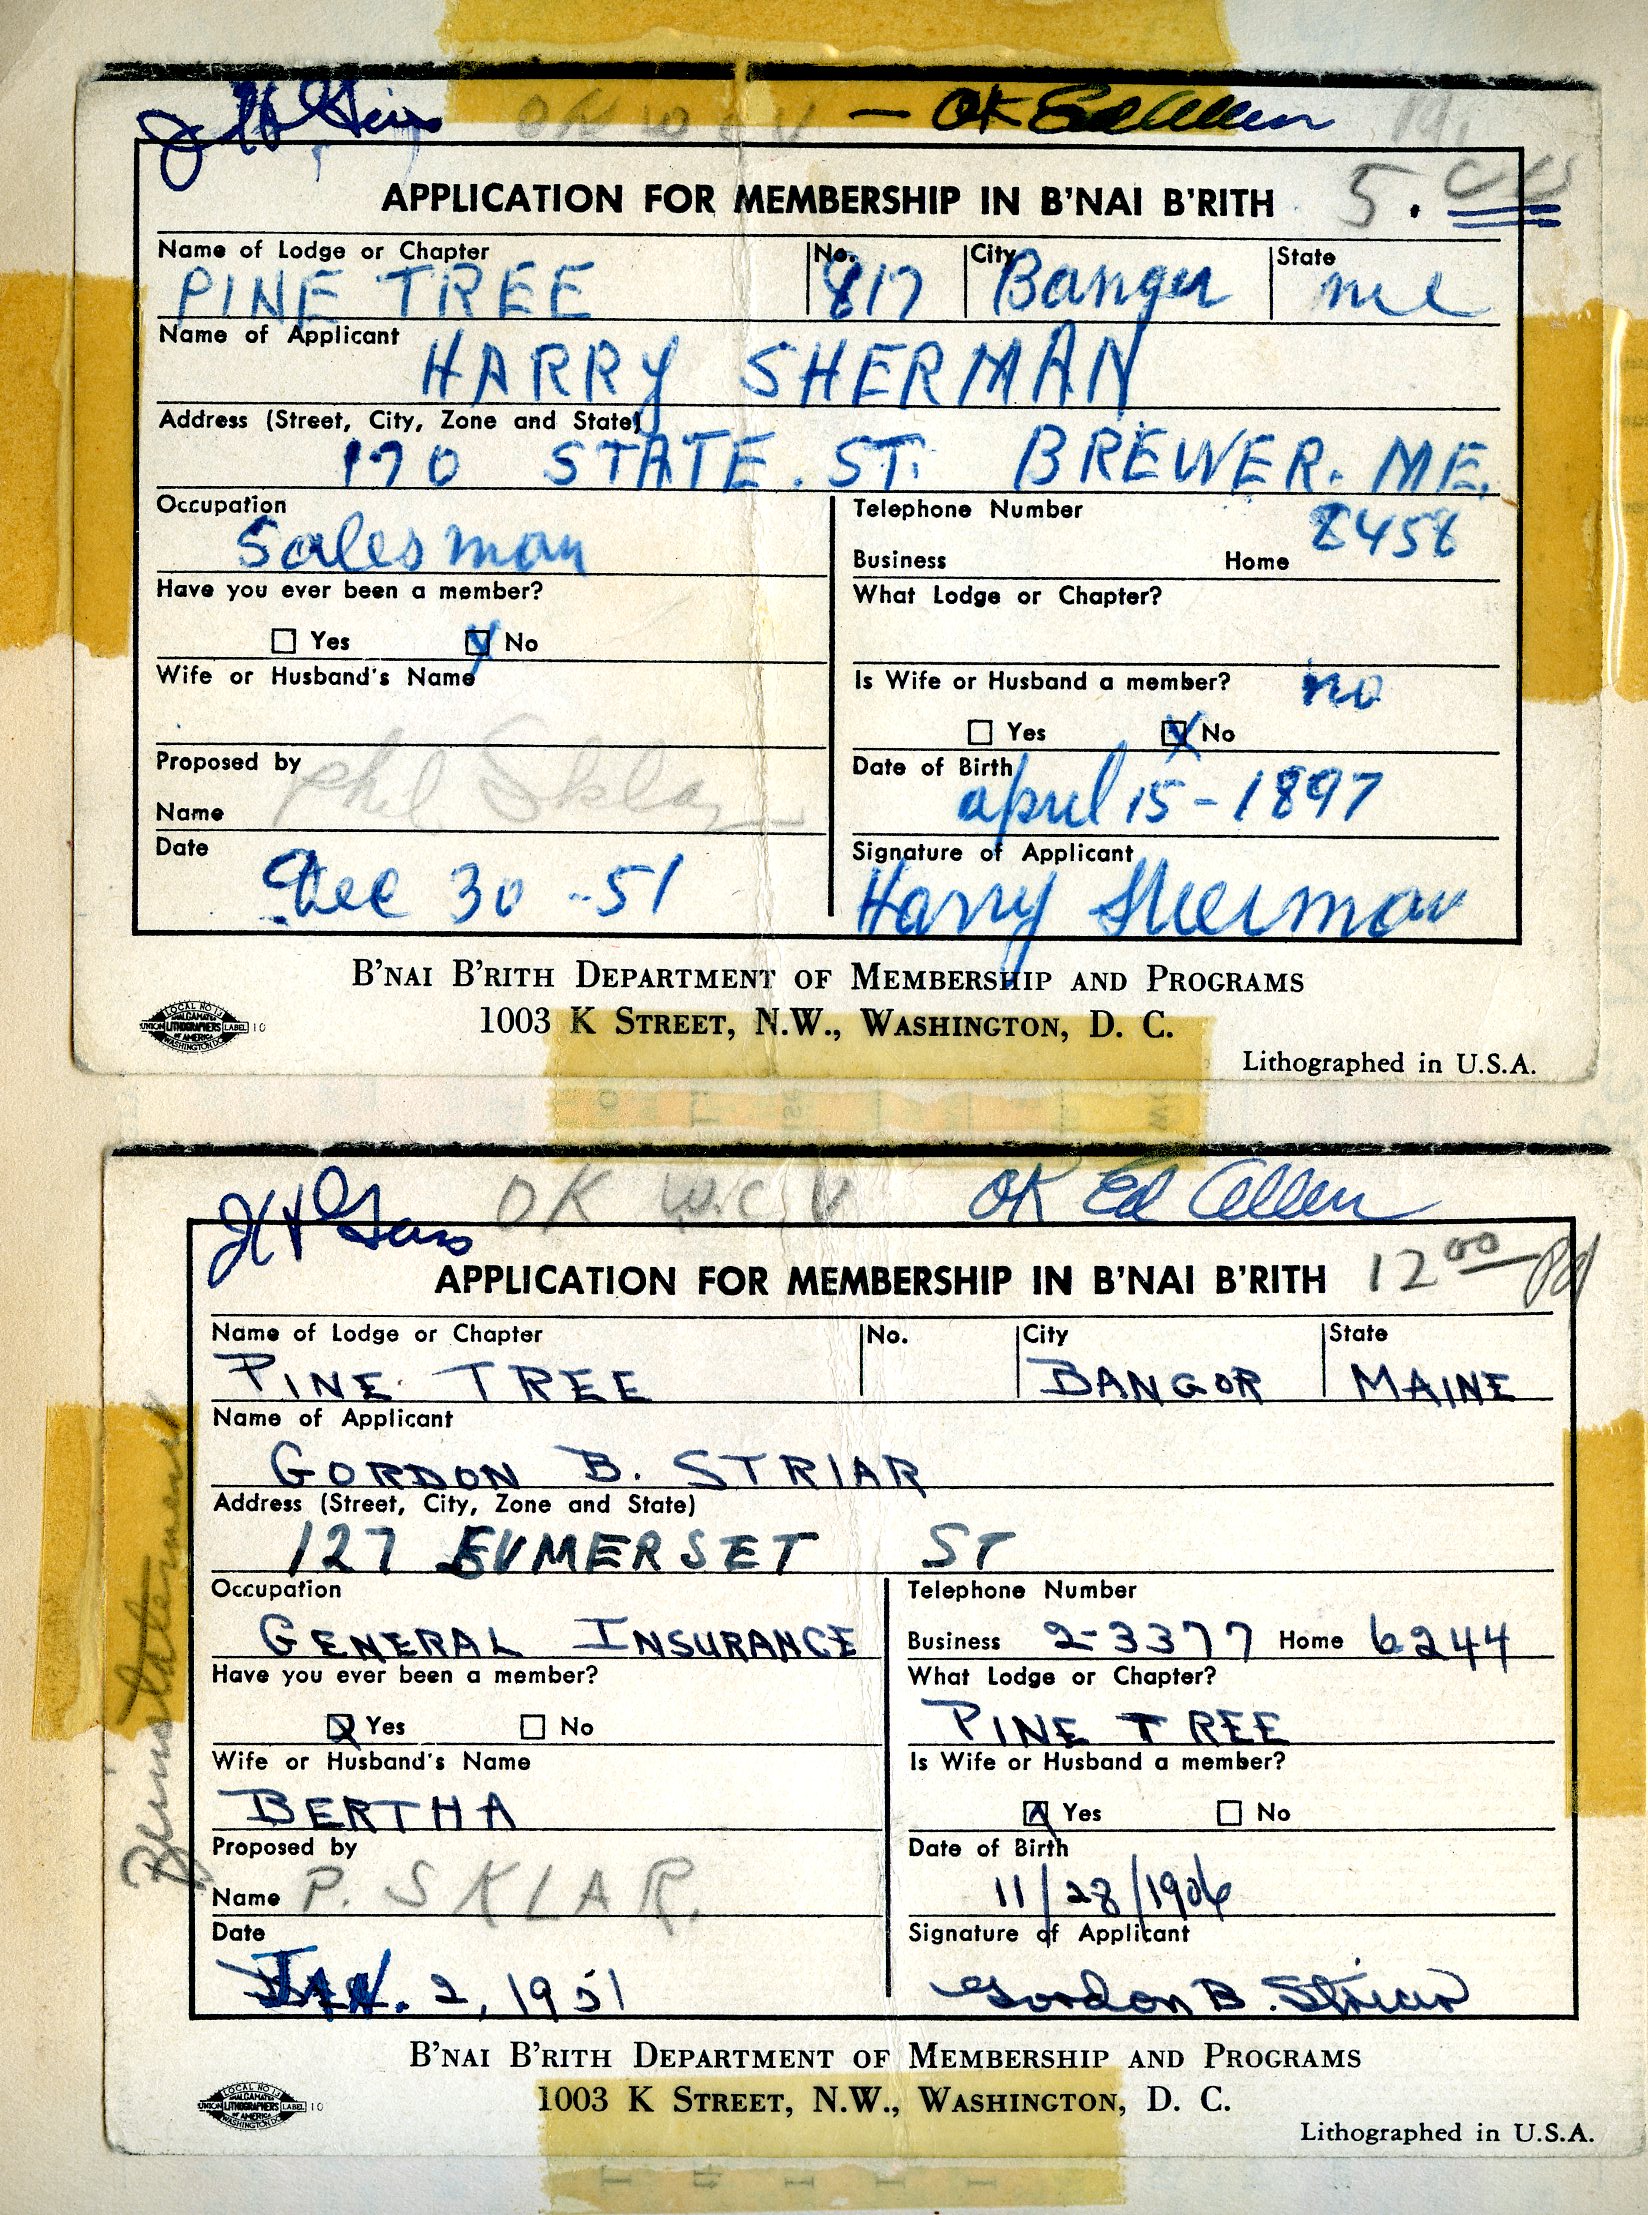 OK W C V — OK Ed Allen
APPLICATION FOR MEMBERSHIP IN B'NAI B'RITH 5.
Name of Lodge or Chapter No. City State
PINE TREE 817 Bangor me
Name of Applicant
HARRY SHERMAN
Address (Street, City, Zone and State)
170 STATE. ST. BREWER. ME.
Occupation Telephone Number
Salesman Business Home 8458
Have you ever been a member? What Lodge or Chapter?
Yes No
Wife or Husband's Name Is Wife or Husband a member? no
Yes No
Proposed by Date of Birth
Name Phil Sklar april 15-1897
Date Signature of Applicant
Dec 30-51 Harry Sherman
B'NAI B'RITH DEPARTMENT OF MEMBERSHIP AND PROGRAMS
1003 K STREET, N.W., WASHINGTON, D. C.
LOCAL NO 13
AMALGAMATED
UNION LITHOGRAPHERS LABEL 10
OF AMERICA
WASHINGTON DC
Lithographed in U.S.A.
OK W.C.V OK Ed Allen
APPLICATION FOR MEMBERSHIP IN B'NAI B'RITH 12 00 Pd
Name of Lodge or Chapter No. City State
PINE TREE BANGOR MAINE
Name of Applicant
GORDON B. STRIAR
Address (Street, City, Zone and State)
127 SUMERSET ST
Occupation Telephone Number
GENERAL INSURANCE Business 2-3377 Home 6244
Have you ever been a member? What Lodge or Chapter?
Yes No PINE TREE
Wife or Husband's Name Is Wife or Husband a member?
BERTHA Yes No
Proposed by Date of Birth
Name P. SKLAR. 11/28/1906
Date Signature of Applicant
JAN. 2, 1951 Gordon B. Striar
Reinstatement
B'NAI B'RITH DEPARTMENT OF MEMBERSHIP AND PROGRAMS
1003 K STREET, N.W., WASHINGTON, D. C.
LOCAL NO 13
AMALGAMATED
UNION LITHOGRAPHERS LABEL 10
OF AMERICA
WASHINGTON DC
Lithographed in U.S.A.